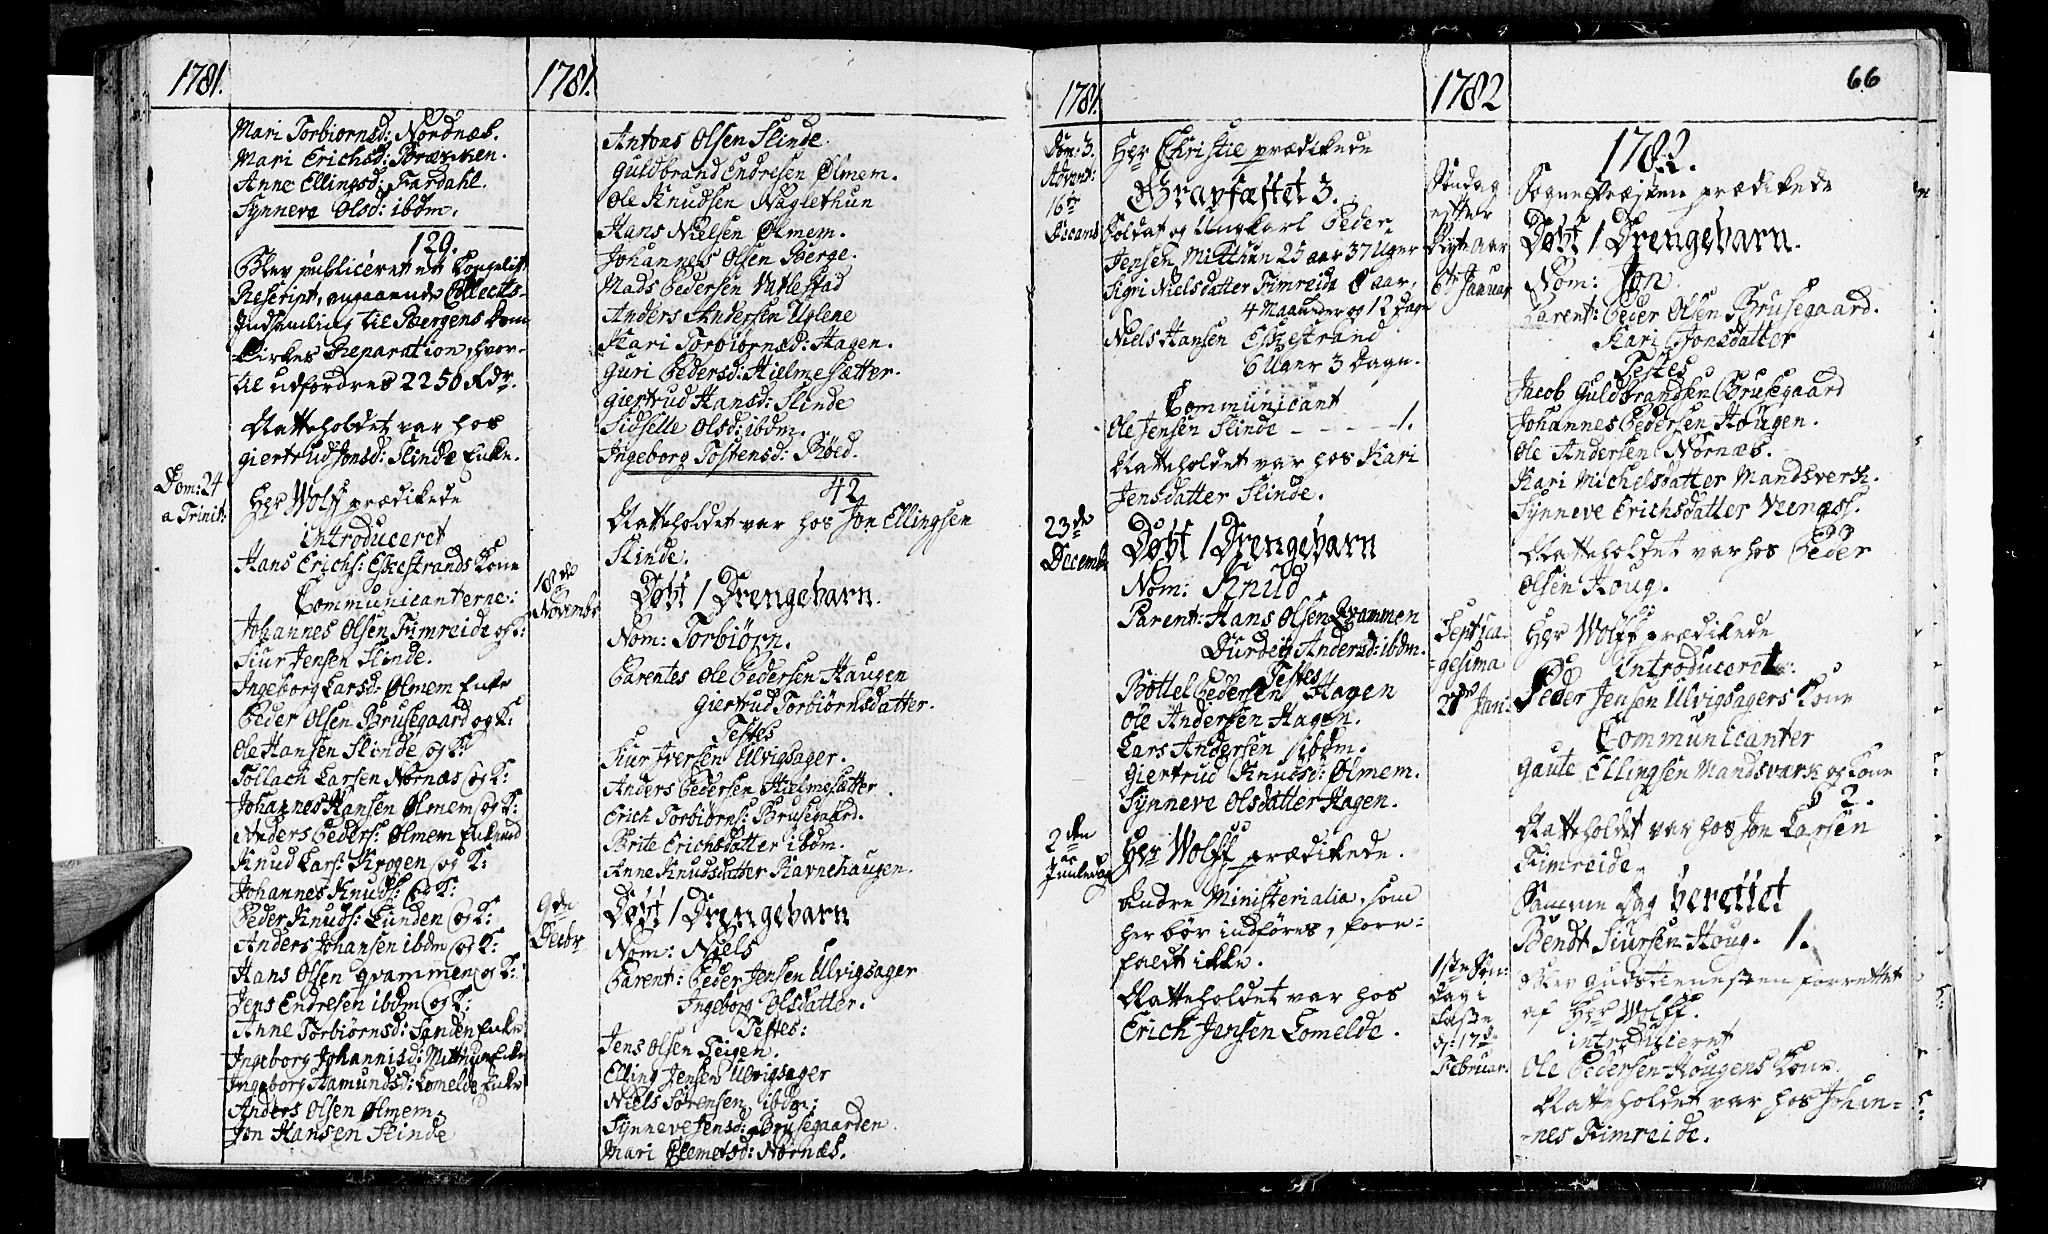 1781.
Mari Torbiørnsd: Nordnæs.
Mari Erichsd: Brækken.
Anne Ellingsd: Fardahl.
Synneve Olsd: ibdm.
129.
Blev publiceret et Kongeligt
Rescript, angaaende Collects-
Indsamling til Bergens Dom
Kirkes Reparation, hvor-
til udfordres 2250 Rdr.
Natteholdet var hos
Giertrud Jonsd: Slinde Enke.
Dom: 24
a Trinit:
Hr Wolff prædikede
introduceret
Hans Erichs: Eskestrands Kone
Communicanterne:
Johannes Olsen Fimreide og K:
Siur Jensen Slinde.
Ingeborg Larsd: Ølmem Enke
Peder Olsen Brusegaard og K:
Ole Hansen Slinde og K:
Tollach Larsen Nornæs og K:
Johannes Hansen Ølmem og K:
Anders Peders: Ølmem Enkemd
Knud Lars: Krogen og K:
Johannes Knuds: og K:
Peder Knuds: Lunden og K:
Anders Johansen ibdm og K:
Hans Olsen Qvammen og K:
Jens Endresen ibdm og K:
Anne Torbiørnsd: Sanden Enke
Ingeborg Johannisd: Mitthun Enke
Ingeborg Hamundsd: Lomelde Enke
Anders Olsen Ølmem.
Jon Hansen Slinde
1781.
Antons Olsen Slinde.
Guldbrand Endresen Ølmem.
Ole Knudsen Naglethun
Hans Nielsen Ølmem.
Johannes Olsen Berge.
Mads Pedersen Vutlestad
Anders Andersen Uglene
Kari Torbiørnsd: Hagen.
Guri Pedersd: Hielmesætter.
Giertrud Hansd: Slinde
Sidselle Olsd: ibdm.
Ingeborg Tostensd: Røed.
42
Natteholdet var hos Jon Ellingsen
Slinde.
18de
Novembr
Døbt 1 Drengebarn.
Nom: Torbiørn.
Parentes Ole Pedersen Haugen
Giertrud Torbiørnsdatter.
Testes
Siur Iversen Ulvigsager.
Anders Pedersen Hielmesætter.
Erich Torbiørns: Brusegaard.
Brite Erichsdatter ibdm.
Anne Knudsdatter Ravnehaugen.
9de
Decbr
Døbt 1 Drengebarn
Nom: Niels
Parent: Peder Jensen Ulvigsager
Ingeborg Olsdatter.
Testes:
Jens Olsen Teigen.
Elling Jensen Ulvigsager
Niels Sørensen ibdm:
Synneve Jensd: Brusegaarden.
Mari Clemetsd: Nornæs.
1781.
Dom: 3.
Advent:
16te
Decemb
Hr Christie prædikede
Gravfæstet 3.
Soldat og Ungkarl Peder
Jensen Mitthun 25 aar 37 Uger
Sigri Nielsdatter Fimreide 8 aar,
4 Maaneder og 12 Dage
Niels Hansen Eskestrand
6 Uger 3 Dage.
Communicant
Ole Jensen Slinde - - - - - 1.
Natteholdet var hos Kari
Jensdatter Slinde.
23de
Decemb
Døbt 1 Drengebarn
Nom: Knud
Parent: Hans Olsen Qvammen
Durdei Andersd: ibdm.
Testes
Bottel Pedersen Hagen
Ole Andersen Hagen.
Lars Andersen ibdm.
Giertrud Knudsd: Ølmem.
Synneve Olsdatter Hagen.
2den
Juuledag
Hr Wolff prædikede.
Andre Ministerialia, som
her bør indføres, fore-
faldt ikke.
Natteholdet var hos
Erich Jensen Lomelde.
1782
66
1782.
Søndag
efter
Nyt Aar
6te Januar
Sognepræsten prædikede
Døbt 1 Drengebarn.
Nom: Jon
Parent: Peder Olsen Brusegaard.
Kari Jonsdatter
Testes
Jacob Guldbrandsen Brusegaard
Johannes Pedersen Hougen.
Ole Andersen Nornæs.
Kari Michelsdatter Mandsverk.
Synneve Erichsdatter Venæs.
Natteholdet var hos Peder
Olsen Houg.
Septua-
gesima
27de Jan:
Hr Wolff prædikede
Introduceret:
Peder Jensen Ulvigsagers Kone
Communicanter
Gaute Ellingsen Mandsvark og Kone
2.
Natteholdet var hos Jon Larsen
Fimreide.
Samme Dag berettet
Bendt Siursen Houg. 1.
1ste Søn-
dag i
Faste
d: 17de
Februar.
Blev Gudstienesten forrettet
af Hr Wolff.
introduceret
Ole Pedersen Hougens Kone
Natteholdet var hos Johan-
-nes Fimreide.